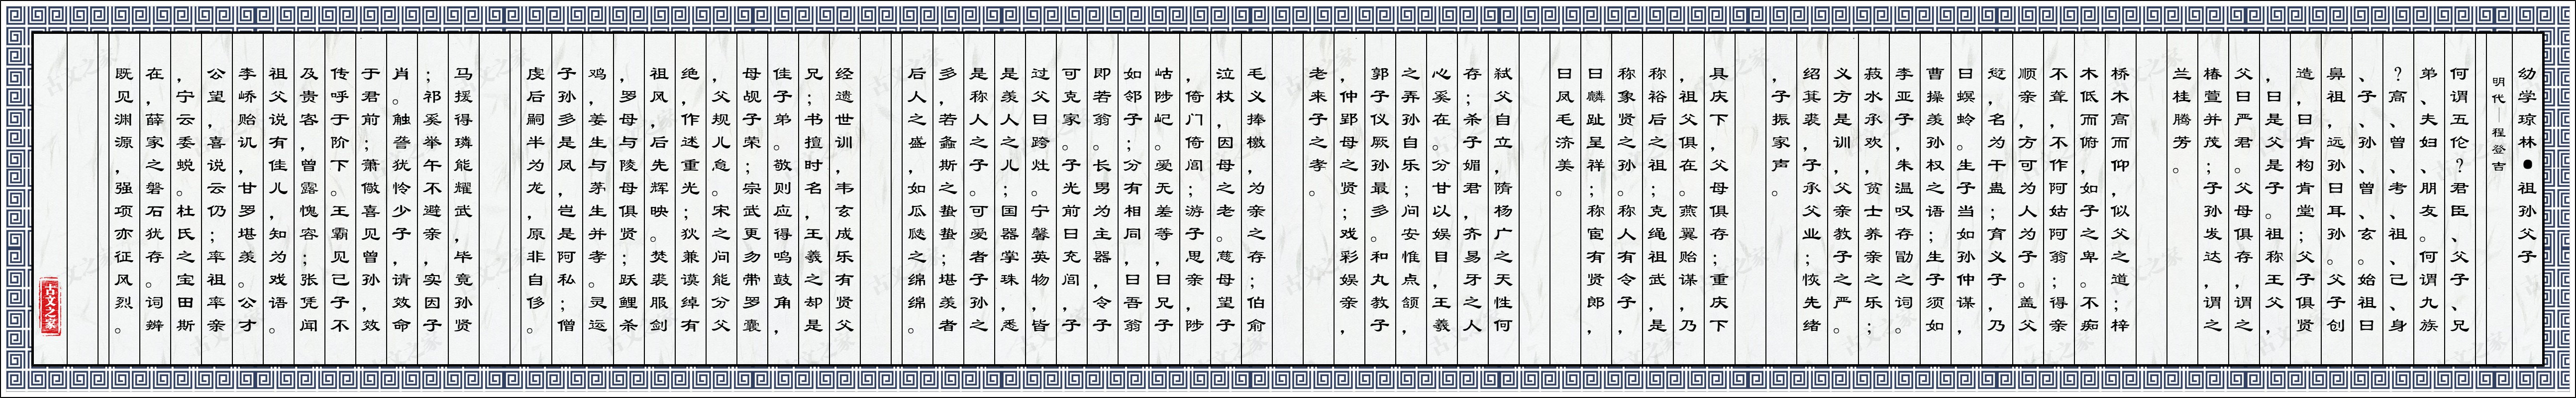 幼学琼林●祖孙父子
明代—程登吉
何谓五伦？君臣、父子、兄
弟、夫妇、朋友。何谓九族
？高、曾、考、祖、己、身
、子、孙、曾、玄。始祖曰
鼻祖，远孙曰耳孙。父子创
造，曰肯构肯堂；父子俱贤
，曰是父是子。祖称王父，
父曰严君。父母俱存，谓之
椿萱并茂；子孙发达，谓之
兰桂腾芳。
桥木高而仰，似父之道；梓
木低而俯，如子之卑。不痴
不聋，不作阿姑阿翁；得亲
顺亲，方可为人为子。盖父
愆，名为干蛊；育义子，乃
曰螟蛉。生子当如孙仲谋，
曹操羡孙权之语；生子须如
李亚子，朱温叹存勖之词。
菽水承欢，贫士养亲之乐；
义方是训，父亲教子之严。
绍箕裘，子承父业；恢先绪
，子振家声。
具庆下，父母俱存；重庆下
，祖父俱在。燕翼贻谋，乃
称裕后之祖；克绳祖武，是
称象贤之孙。称人有令子，
曰麟趾呈祥；称宦有贤郎，
曰凤毛济美。
弑父自立，隋杨广之天性何
存；杀子媚君，齐易牙之人
心奚在。分甘以娱目，王羲
之弄孙自乐；问安惟点颔，
郭子仪厥孙最多。和丸教子
，仲郢母之贤；戏彩娱亲，
老来子之孝。
毛义捧檄，为亲之存；伯俞
泣杖，因母之老。慈母望子
，倚门倚闾；游子思亲，陟
岵陟屺。爱无差等，曰兄子
如邻子；分有相同，曰吾翁
即若翁。长男为主器，令子
可克家。子光前曰充闾，子
过父曰跨灶。宁馨英物，皆
是羡人之儿；国器掌珠，悉
是称人之子。可爱者子孙之
多，若螽斯之蛰蛰；堪羡者
后人之盛，如瓜瓞之绵绵。
经遗世训，韦玄成乐有贤父
兄；书擅时名，王羲之却是
佳子弟。敬则应得鸣鼓角，
母觇子荣；宗武更勿带罗囊
，父规儿怠。宋之问能分父
绝，作述重光；狄兼谟绰有
祖风，后先辉映。焚裘服剑
，罗母与陵母俱贤；跃鲤杀
鸡，姜生与茅生并孝。灵运
子孙多是凤，岂是阿私；僧
虔后嗣半为龙，原非自侈。
马援得璘能耀武，毕竟孙贤
；祁奚举午不避亲，实因子
肖。触詟犹怜少子，请效命
于君前；萧儆喜见曾孙，效
传呼于阶下。王霸见己子不
及贵客，曾露愧容；张凭闻
祖父说有佳儿，知为戏语。
李峤贻讥，甘罗堪羡。公才
公望，喜说云仍；率祖率亲
，宁云委蜕。杜氏之宝田斯
在，薛家之磐石犹存。词辨
既见渊源，强项亦征风烈。
古文之家